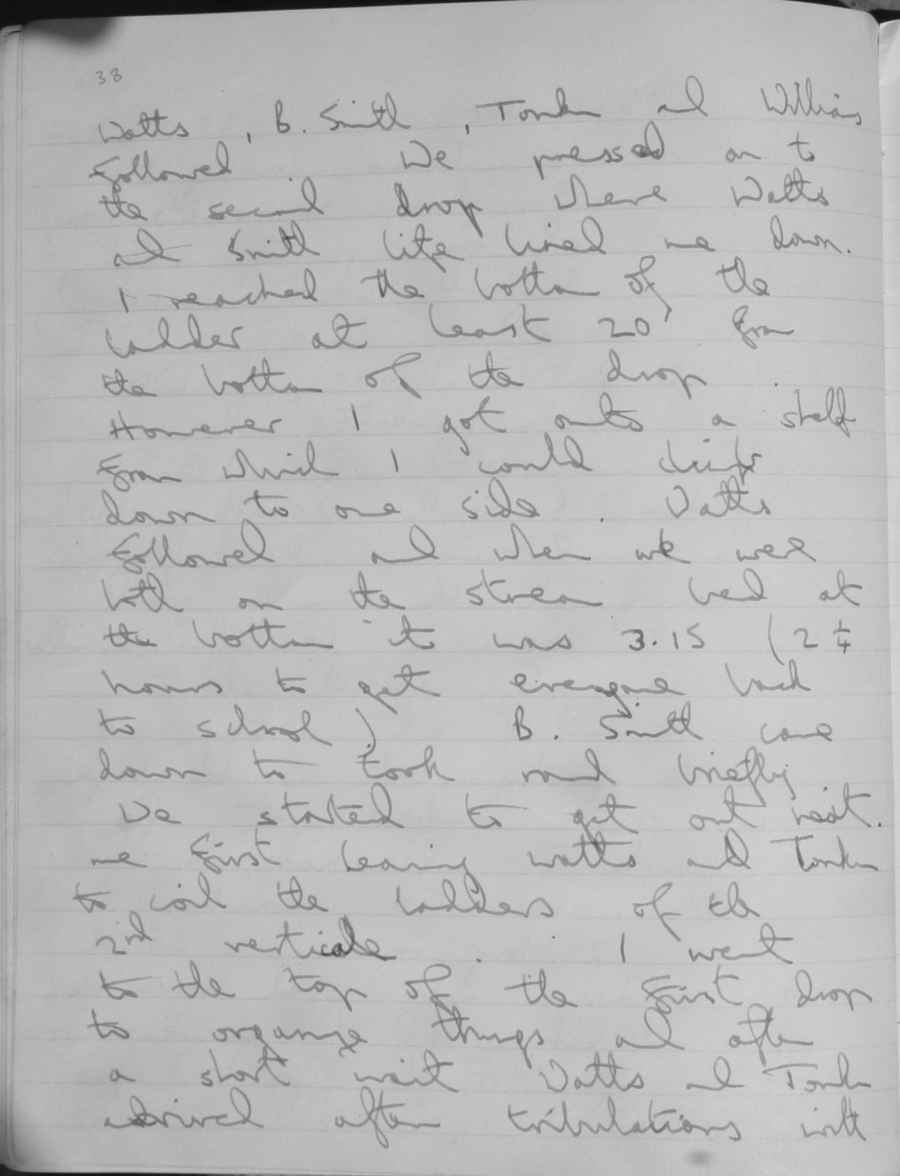 38
Watts, B. Smith, Tonkin and Williams
followed. We pressed on to
the second drop where Watts
and Smith life lined me down.
I reached the bottom of the
ladder at least 20' from
the bottom of the drop.
However I got onto a shelf
from which I could climb
down to one side. Watts
followed and when we were
both on the stream bed at
the bottom it was 3.15 (2 1/4
hours to get everyone back
to school) B. Smith came
down to look round briefly
We started to get out next.
me first leaving Watts and Tonkin
to coil the ladders of the
2nd verticale. I went
to the top of the first drop
to organize things and after
a short wait Watts and Tonkin
arrived after tribulations with